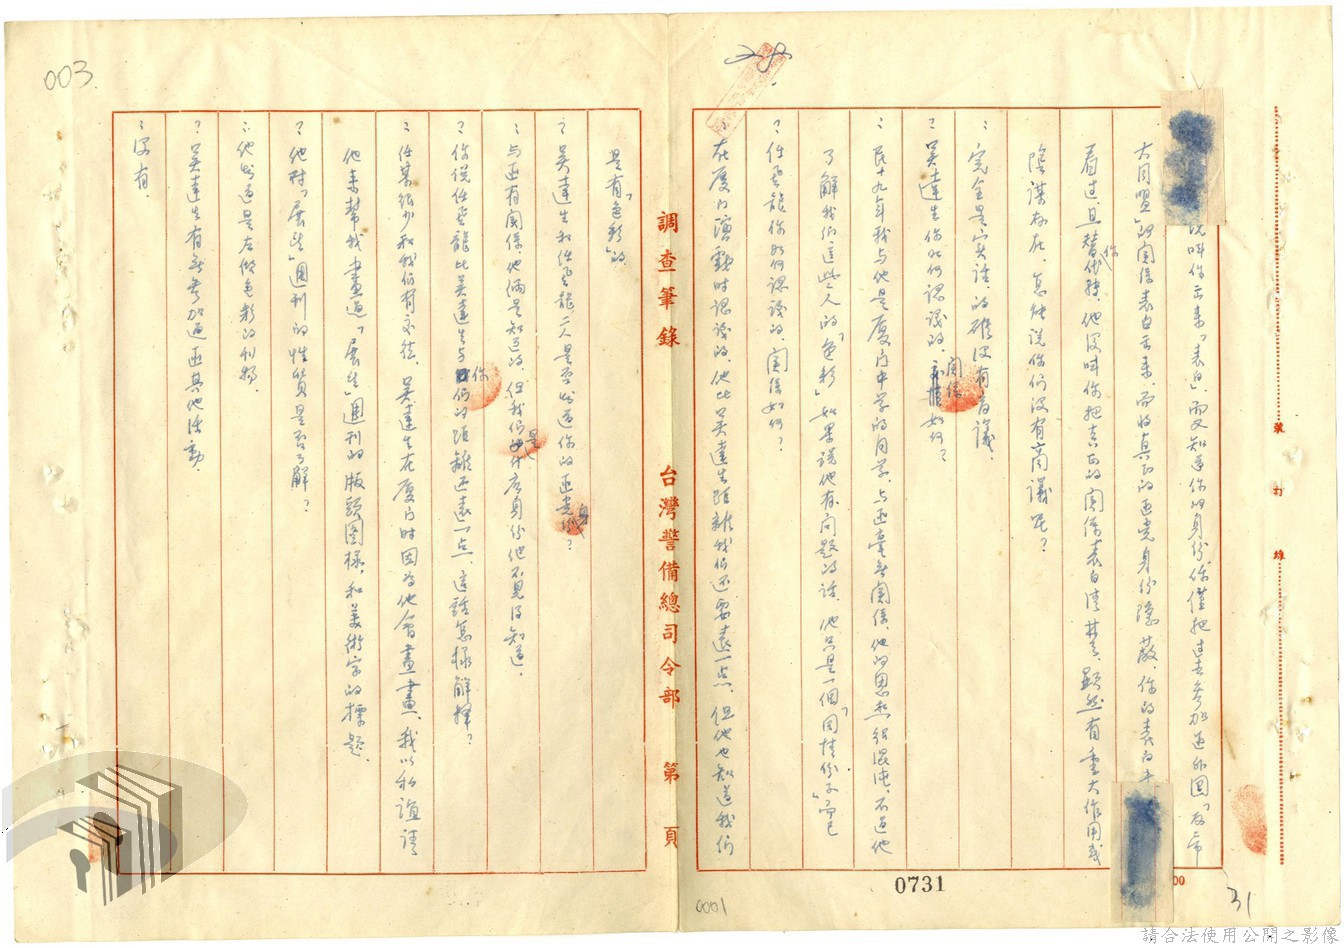 003
說叫你出來「表白」而又知道你的身份你僅把過去參加過外圍「反帝
大同盟」的關係表白出來,而將真正的匪黨身份隱蔽,你的表白
看過,且替你代轉,他沒叫你把真正的關係表白清楚,顯然有重大作用或
陰謀存在,怎能說你們沒有商議呢?
:完全是實話,的確沒有商議。
?吳達生你如何認識的,關係如何?
:民十九年我与他是廈门中学的同学,与匪毫無關係,他的思想很混沌,不过他
了解我们這些人的「色彩」如果說他有问題的話,他只是一個「同情份子」而已
?任飛龍你如何認識的,關係如何?
:在廈门讀書时認識的,他比吳達生距離我们还要遠一点,但他也知道我们
0731
0001
00
31
裝
訂
線
調查筆錄 台灣警備總司令部 第 頁
是有「色彩」的。
?吳達生和任飛龍二人是否知道你的匪党身份?
:与匪有關係,他倆是知道的,但我们是什麽身份他不見得知道。
?你說任飛龍比吳達生与你们的距離还遠一点,這話怎樣解釋?
:任某很少和我们有交往,吳達生在廈门时因为他會畫畫,我以私誼請
他來幫我畫過「展望」週刊的版頭图樣,和美術字的標題。
?他对「展望」週刊的性質是否了解?
:他知道是左傾色彩的刊物。
?吳達生有無參加過匪其他活動。
:沒有。
請合法使用公開之影像